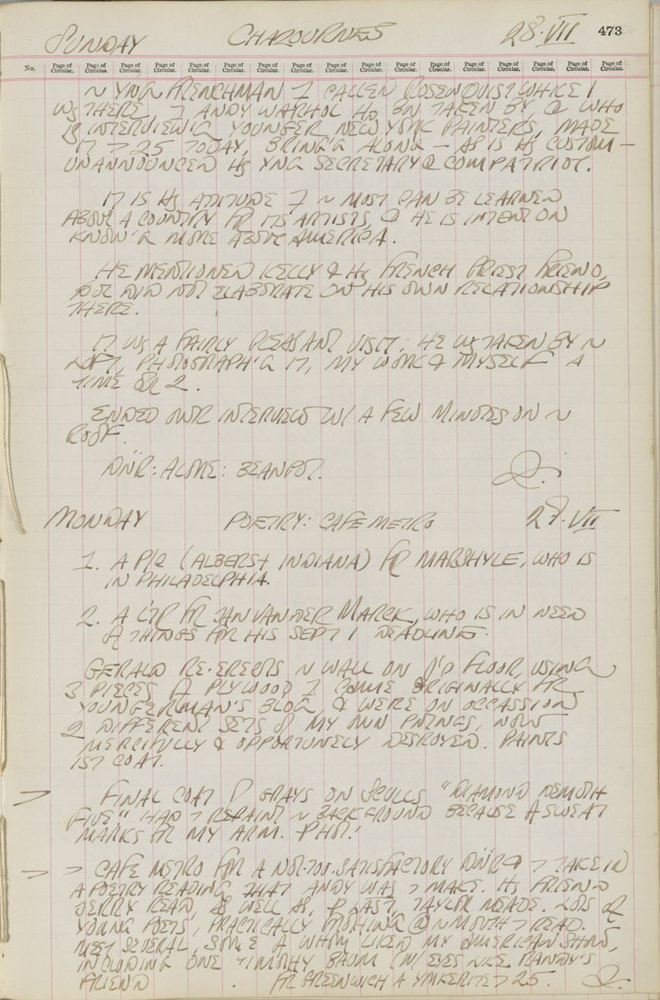 473
SUNDAY CHADOURNES 28·VII
No. Page of Circular. Page of Circular. Page of Circular. Page of Circular. Page of Circular. Page of Circular. Page of Circular. Page of Circular. Page of Circular. Page of Circular. Page of Circular. Page of Circular. Page of Circular. Page of Circular. Page of Circular. Page of Circular.
YNG FRENCHMAN CALLED ROSENQUIST WHILE I
WS THERE, ANDY WARHOL HD BN TAKEN BY & WHO
IS INTERVIEWIG YOUNGER NEW YORK PAINTERS, MADE
IT 25 TODAY, BRING'G ALONG — AS IS HS CUSTOM —
UNANNOUNCED HS YNG SECRETARY & COMPATRIOT.
IT IS HS ATTITUDE MOST CAN BE LEARNED
ABOUT A COUNTRY FR ITS ARTISTS, & HE IS INTENT ON
KNOW'G MORE ABOUT AMERICA.
HE MENTIONED KELLY & HS FRENCH PRIEST FRIEND,
BUT DID NOT ELABORATE ON HIS OWN RELATIONSHIP
THERE.
IT WS A FAIRLY PLEASANT VISIT: HE WS TAKEN BY
LOFT, PHOTOGRAPH'G IT, MY WORK & MYSELF A
TIME OR 2.
ENDED OUR INTERVIEW W/ A FEW MINUTES ON
ROOF.
DNR: ALONE: BEANPOT.
MONDAY POETRY: CAFE METRO 29·VII
1. A P/C (ALBERS & INDIANA) FR MARSHYLE, WHO IS
IN PHILADELPHIA.
2. A LTR FR JAN VAN DER MARCK, WHO IS IN NEED
OF THINGS FOR HIS SEPT 1 DEADLINE.
GERALD RE-ERECTS WALL ON FLOOR, USING
3 PIECES OF PLYWOOD COME ORIGINALLY FR
YOUNGERMAN'S BLDG, & WERE ON OCCASSION
2 DIFFERENT SETS OF MY OWN PNTNGS, NOW
MERCIFULLY & OPPORTUNELY DESTROYED. PAINTS
1ST COAT.
FINAL COAT GRAYS ON SCULLS "DIAMOND DEMUTH
FIVE" HAD REPAINT BACKGROUND BECAUSE OF SWEAT
MARKS FR MY ARM. PHO!
CAFE METRO FOR A NOT-TOO-SATISFACTORY DNR & TAKE IN
A POETRY READING THAT ANDY WAS MAKE. HS FRIEND
JERRY READ, AS WELL AS, LAST, TAYLOR MEADE. LOTS OF
YOUNG POETS, PRACTICALLY MOUTH READ.
MET SEVERAL, SOME OF WHOM LIKED MY AMERICAN SHOW,
INCLUDING ONE TIMOTHY BAUM (W/ EYES LIKE RANDY'S
FRIEND FR GREENWICH & 25.